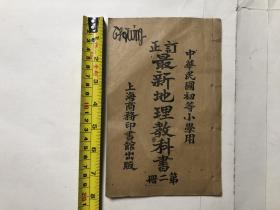 中華民國初等小學用
訂正
最新地理教科書
第二冊
上海商務印書館出版